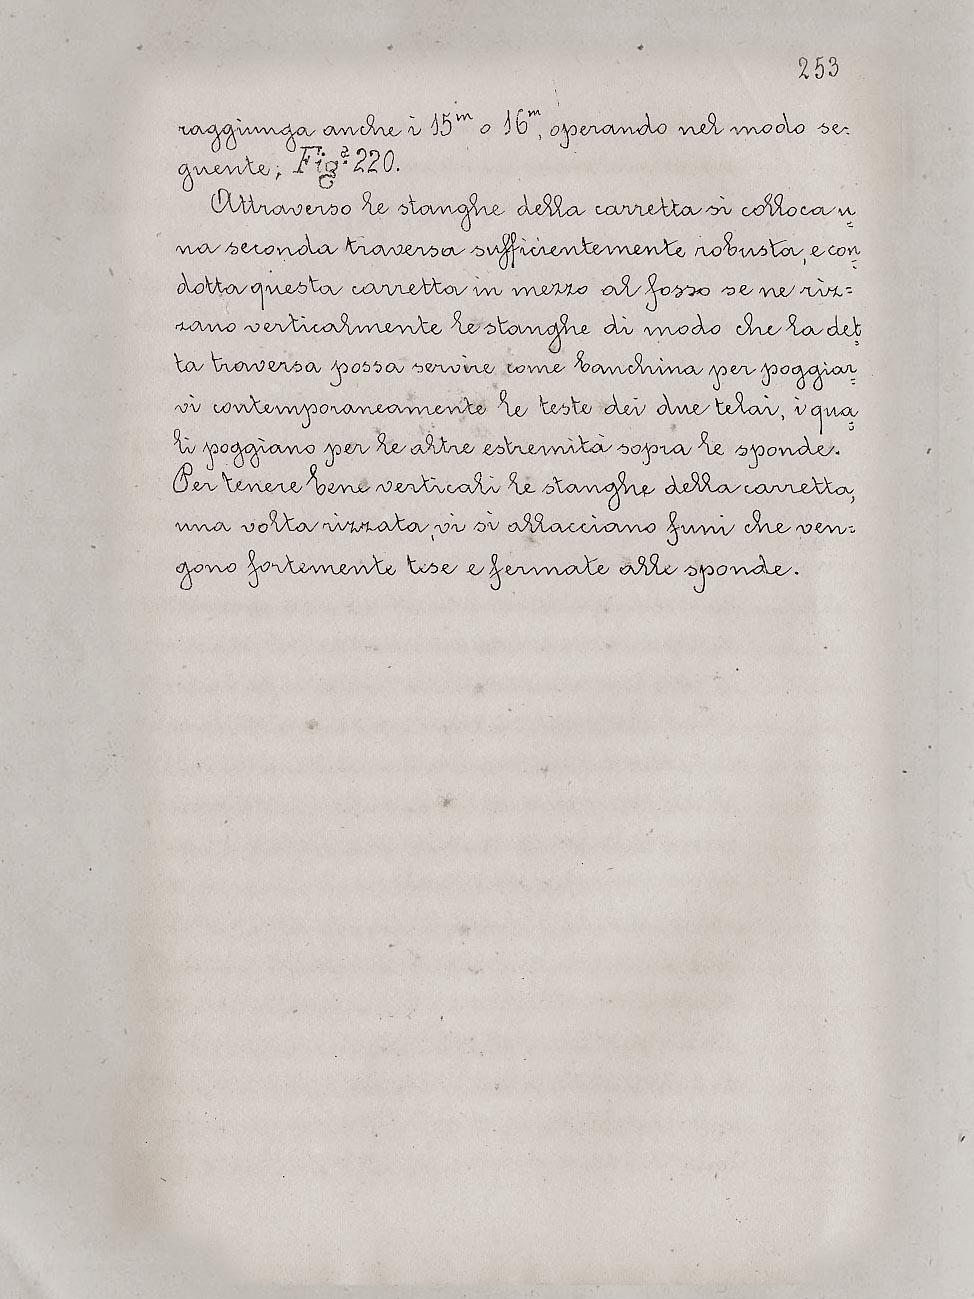 253
raggiunga anche i 15ᵐ o 16ᵐ, operando nel modo se-
guente; Figª 220.
Attraverso le stanghe della carretta si colloca u=
na seconda traversa sufficientemente robusta, e con=
dotta questa carretta in mezzo al fosso se ne riz=
zano verticalmente le stanghe di modo che la det=
ta traversa possa servire come banchina per poggiar=
vi contemporaneamente le teste dei due telai, i qua=
li poggiano per le altre estremità sopra le sponde.
Per tenere bene verticali le stanghe della carretta,
una volta rizzata, vi si allacciano funi che ven=
gono fortemente tese e fermate alle sponde.